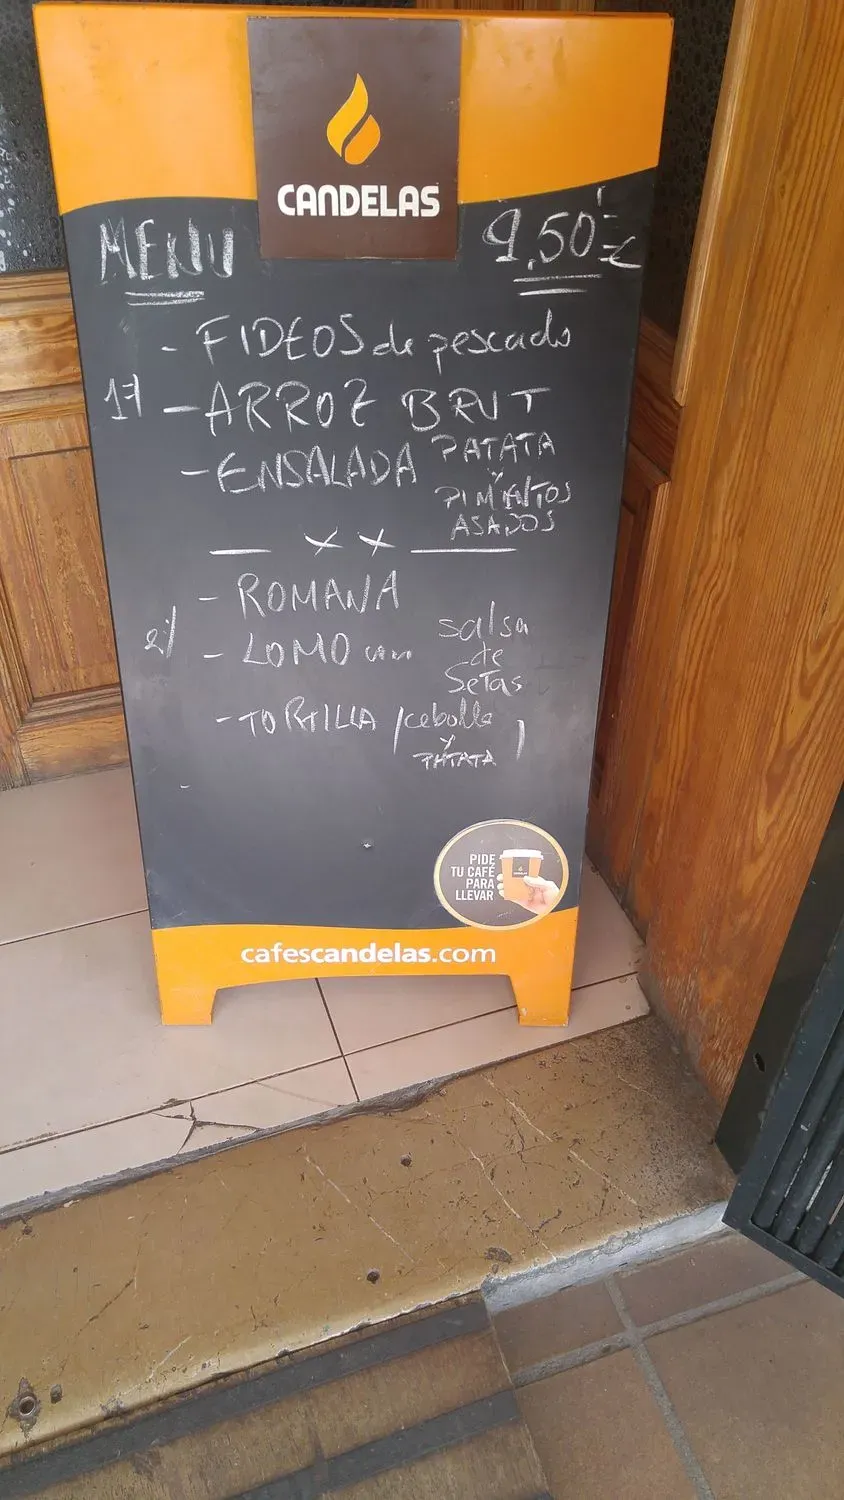 CANDELAS
MENU 9,50'- €
- FIDEOS de pescado
1º/ - ARROZ BRUT
- ENSALADA PATATA
Y
PIMIENTOS
ASADOS
— X X —
- ROMANA
2º/ - LOMO con salsa
de
SETAS
- TORTILLA (cebolla
Y
PATATA)
PIDE
TU CAFÉ
PARA
LLEVAR
CANDELAS
cafescandelas.com